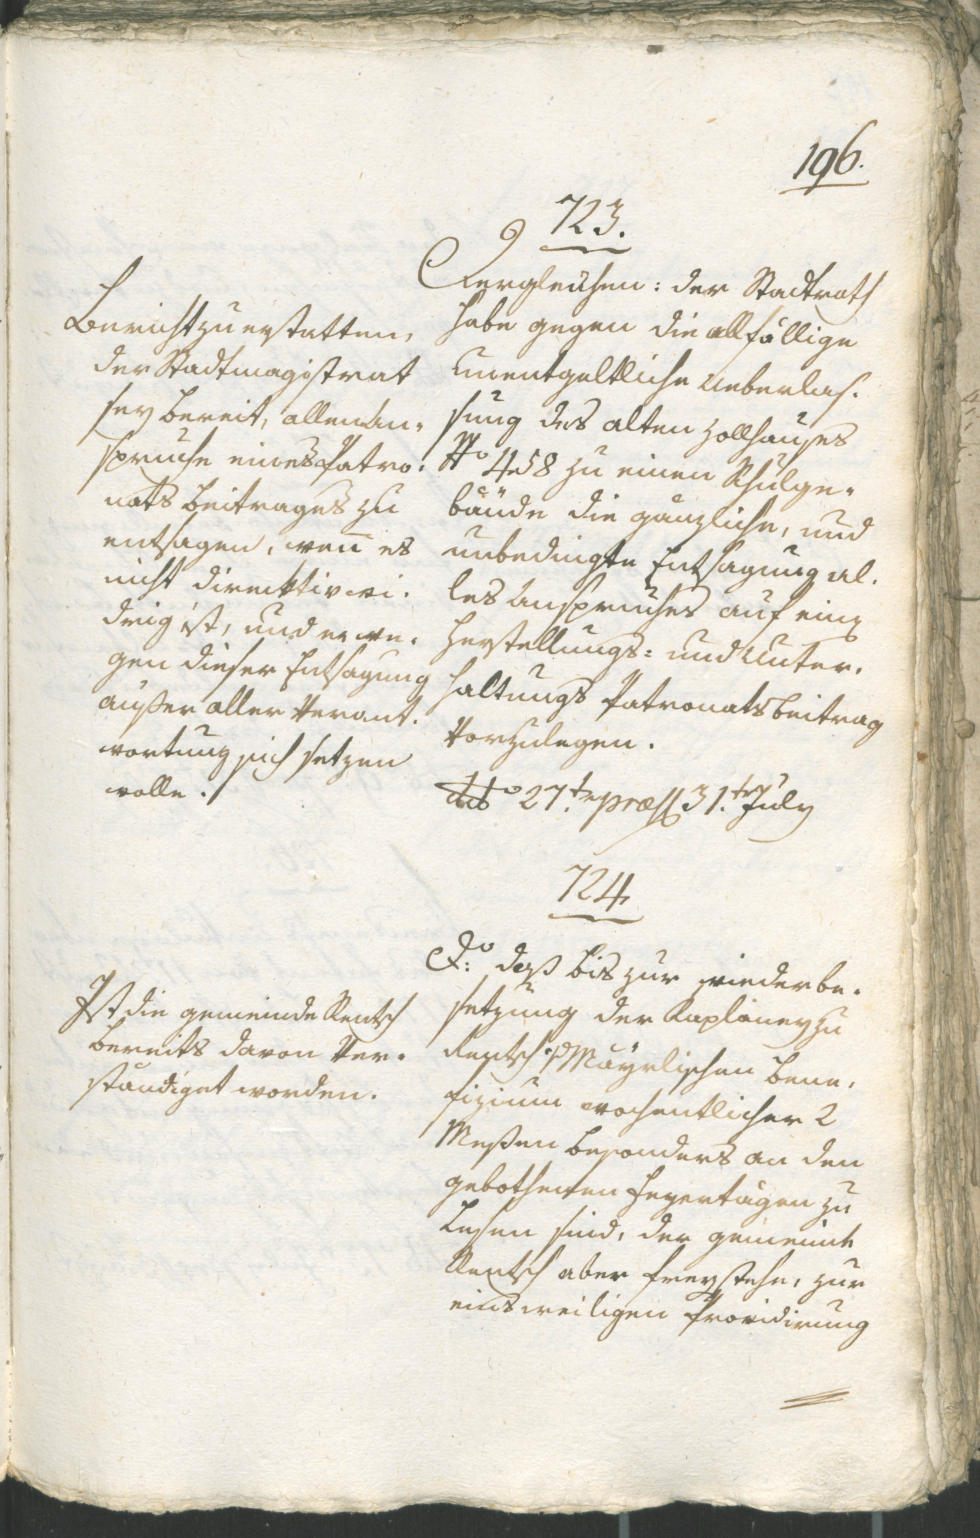 196.
723.
Dergleichen: der Stadtrath
habe gegen die allfällige
unentgeltliche Ueberlas-
sung des alten Zollhauses
No 458 zu einen Schulge-
bäude die gänzliche, und
unbedingte Entsagung al-
les Anspruches auf ein
Herstellungs- und Unter-
haltungs Patronatsbeitrag
Vorzulegen.
ddto 27.t præs. 31.t July
Bericht zu erstatten,
der Stadtmagistrat
sey bereit, allem An-
spruche eines Patro-
nats Beitrages zu
entsagen, wenn es
nicht direktivwi-
drig ist, und er we-
gen dieser Entsagung
außer aller Verant-
wortung sich setzen
wolle.
724
do: daß bis zur wiederbe-
setzung der Kaplaney zu
Rentsch Mayrlischen Bene-
fizium wochentlicher 2
Meßen besonders an den
gebothenen Feyertägen zu
Lesen sind, der gemeinde
Rentsch aber freystehe, zur
einsweiligen Providirung
Ist die gemeinde Rentsch
bereits davon Ver-
ständiget worden.